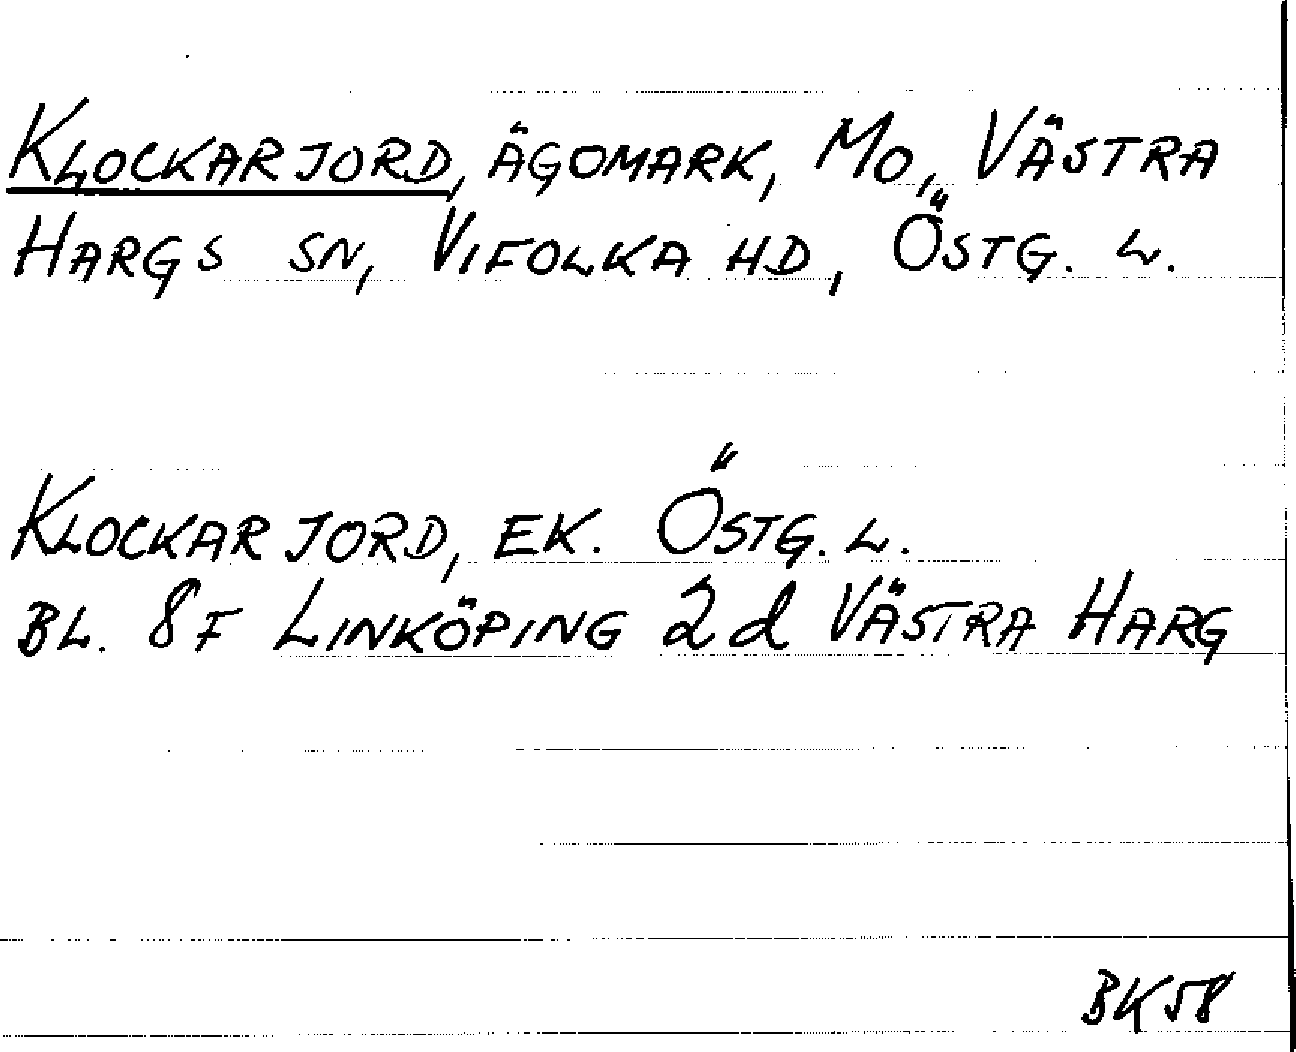 KLOCKARJORD, ÄGOMARK, MO, VÄSTRA
HARGS SN, VIFOLKA HD, ÖSTG. L.
KLOCKARJORD, EK. ÖSTG. L.
BL. 8F LINKÖPING 2d VÄSTRA HARG
BK58